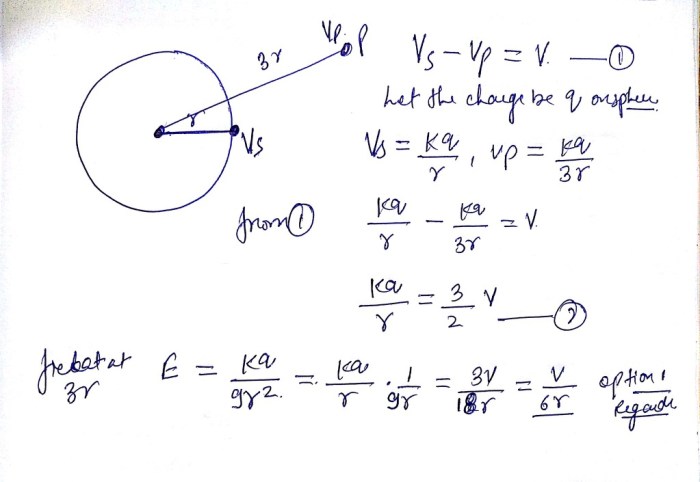 Vp. P
3r
r
Vs
Vs - Vp = V. — ①
Let the charge be q on sphere
Vs = Kq/r, Vp = Kq/3r
from ① Kq/r - Kq/3r = V.
Kq/r = 3/2 V — ②
at 3r E = Kq/9r2. = Kq/r . 1/9r = 3V/18r = V/6r option 1
Regards